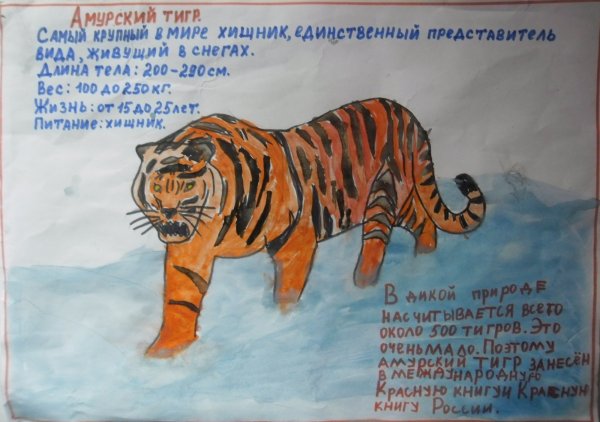 Амурский тигр.
Самый крупный в мире хищник, единственный представитель
вида, живущий в снегах.
Длина тела: 200-290см.
Вес: 100 до 250 кг.
Жизнь: от 15 до 25 лет.
Питание: хищник.
В дикой природе
насчитывается всего
около 500 тигров. Это
очень мало. Поэтому
амурский тигр занесён
в международную
Красную книгу и Красную
книгу России.